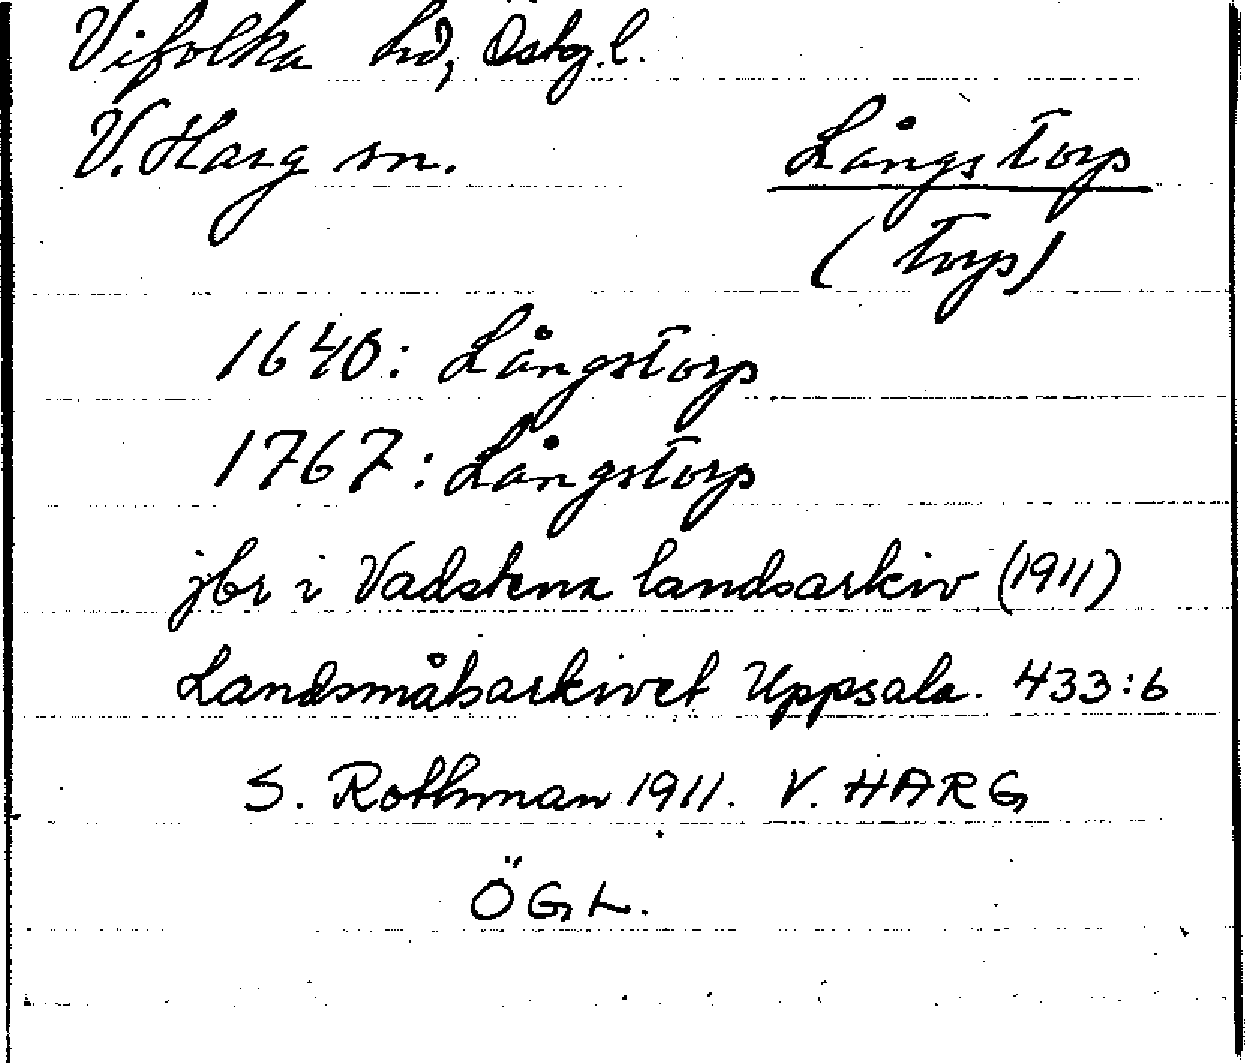 Vifolka hd, Östg.l.
V. Harg sn. Långstorp
(Torp)
1640: Långstorp
1767: Långstorp
jbr i Vadstena landsarkiv (1911)
Landsmålsarkivet Uppsala. 433:6
S. Rothman 1911. V. HARG
ÖGL.